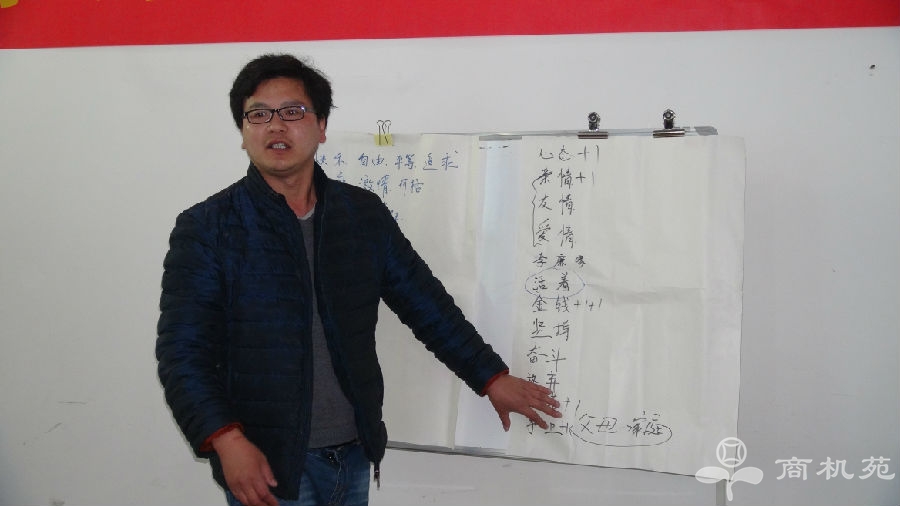 快乐 自由 平等 追求
激情 价格
心态+1
亲情+1
友情
爱情
李廉孝
活着
金钱+1+1
坚持
奋斗
放弃
+1
父母 家庭
商机苑